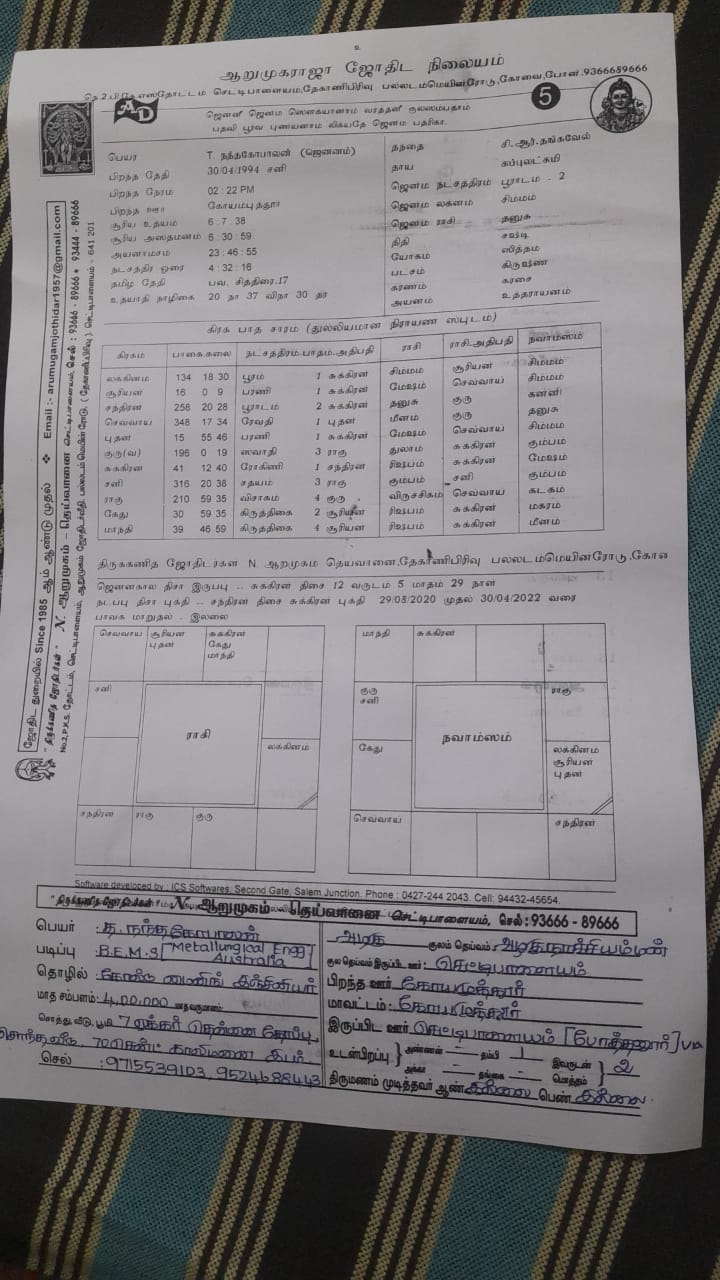 உ
ஆறுமுகராஜா ஜோதிட நிலையம்
நெ.2.பி.கே.எஸ்தோட்டம் செட்டிபாளையம்,தேகாணிபிரிவு பல்லடம்மெயின்ரோடு,கோவை,போன்.9366689666
AD
5
ஜெனனீ ஜென்ம
பதவி பூர்வ ஜென்ம பத்ரிகா.
பெயர் T. நந்தகோபாலன் (ஜெனனம்)
பிறந்த தேதி 30/04/1994 சனி
பிறந்த நேரம் 02 : 22 PM
பிறந்த ஊர் கோயம்புத்தூர்
சூரிய உதயம் 6 : 7 : 38
சூரிய அஸ்தமனம் 6 : 30 : 59
அயனாம்சம் 23 : 46 : 55
நட்சத்திர ஓரை 4 : 32 : 16
தமிழ் தேதி பவ, சித்திரை.17
உதயாதி நாழிகை 20 நா 37 விநா 30 தர்
தந்தை சி.ஆர்.தங்கவேல்
தாய் சுப்புலட்சுமி
ஜென்ம நட்சத்திரம் பூராடம் - 2
ஜென்ம லக்னம் சிம்மம்
ஜென்ம ராசி தனுசு
திதி சஷ்டி
யோகம் ஸித்தம்
பட்சம் கிருஷ்ண
கரணம் கரசை
அயனம் உத்தராயணம்
கிரக பாத சாரம் (துல்லியமான நிராயண ஸ்புடம்)
கிரகம் பாகை.கலை நட்சத்திரம்.பாதம்.அதிபதி ராசி ராசி-அதிபதி நவாம்ஸம்
லக்கினம் 134 18 30 பூரம் 1 சுக்கிரன் சிம்மம் சூரியன் சிம்மம்
சூரியன் 16 0 9 பரணி 1 சுக்கிரன் மேஷம் செவ்வாய் சிம்மம்
சந்திரன் 258 20 28 பூராடம் 2 சுக்கிரன் தனுசு குரு கன்னி
செவ்வாய் 348 17 34 ரேவதி 1 புதன் மீனம் குரு தனுசு
புதன் 15 55 46 பரணி 1 சுக்கிரன் மேஷம் செவ்வாய் சிம்மம்
குரு(வ) 196 0 19 ஸ்வாதி 3 ராகு துலாம் சுக்கிரன் கும்பம்
சுக்கிரன் 41 12 40 ரோகிணி 1 சந்திரன் ரிஷபம் சுக்கிரன் மேஷம்
சனி 316 20 38 சதயம் 3 ராகு கும்பம் சனி கும்பம்
ராகு 210 59 35 விசாகம் 4 குரு விருச்சிகம் செவ்வாய் கடகம்
கேது 30 59 35 கிருத்திகை 2 சூரியன் ரிஷபம் சுக்கிரன் மகரம்
மாந்தி 39 46 59 கிருத்திகை 4 சூரியன் ரிஷபம் சுக்கிரன் மீனம்
திருக்கணித ஜோதிடர்கள் N. ஆறுமுகம் தெய்வானை,தேகாணிபிரிவு பல்லடம்மெயின்ரோடு.கோவை
ஜென்னகால திசா இருப்பு .. சுக்கிரன் திசை 12 வருடம் 5 மாதம் 29 நாள்
நடப்பு திசா புக்தி .. சந்திரன் திசை சுக்கிரன் புக்தி 29/08/2020 முதல் 30/04/2022 வரை
பாவக மாறுதல் . இல்லை
செவ்வாய்
சூரியன்
புதன்
சுக்கிரன்
கேது
மாந்தி
சனி
ராசி
லக்கினம்
சந்திரன்
ராகு
குரு
மாந்தி
சுக்கிரன்
குரு
சனி
ராகு
நவாம்ஸம்
கேது
லக்கினம்
சூரியன்
புதன்
செவ்வாய்
சந்திரன்
Software developed by : ICS Softwares, Second Gate, Salem Junction. Phone : 0427-244 2043. Cell: 94432-45654.
"திருக்கணித ஜோதிடர்கள்" N. ஆறுமுகம் - தெய்வானை செட்டிபாளையம், செல் : 93666 - 89666
பெயர் : த. நந்தகோபாலன்
படிப்பு : B.E.M.S [Metallurgical Engg Australia]
தொழில் : மைனிங் இஞ்சினியர்
மாத சம்பளம் : 4,00,000
சொத்து, வீடு, பூமி 7 ஏக்கர் தென்னை தோப்பு
சொந்த வீடு, 70 சென்ட் காலிமனை இடம்
செல் : 9715539103, 9524688443
குலம் தெய்வம் : அழகுநாச்சியம்மன்
குல தெய்வம் இருப்பிட ஊர் : செட்டிபாளையம்
பிறந்த ஊர் : கோயமுத்தூர்
மாவட்டம் : கோயமுத்தூர்
இருப்பிட ஊர் செட்டிபாளையம் [போத்தனூர்] via
உடன்பிறப்பு } அண்ணன் - தம்பி 1 இவருடன் } 2
அக்கா - தங்கை - மொத்தம்
திருமணம் முடித்தவர் ஆண் இல்லை பெண் இல்லை.
ஜோதிட துறையில் Since 1985 ஆம் ஆண்டு முதல் ❖ Email :- arumugamjothidar1957@gmail.com
"திருக்கணித ஜோதிடர்கள்" N. ஆறுமுகம் – தெய்வானை செட்டிபாளையம், செல் : 93666 - 89666 * 93444 - 89666
No.2, P.K.S. தோட்டம், செட்டிபாளையம், ஆறுமுகம் ஜோதிடர்வீதி, பல்லடம் மெயின் ரோடு, (தேகாணிபிரிவு), செட்டிபாளையம், - 641 201